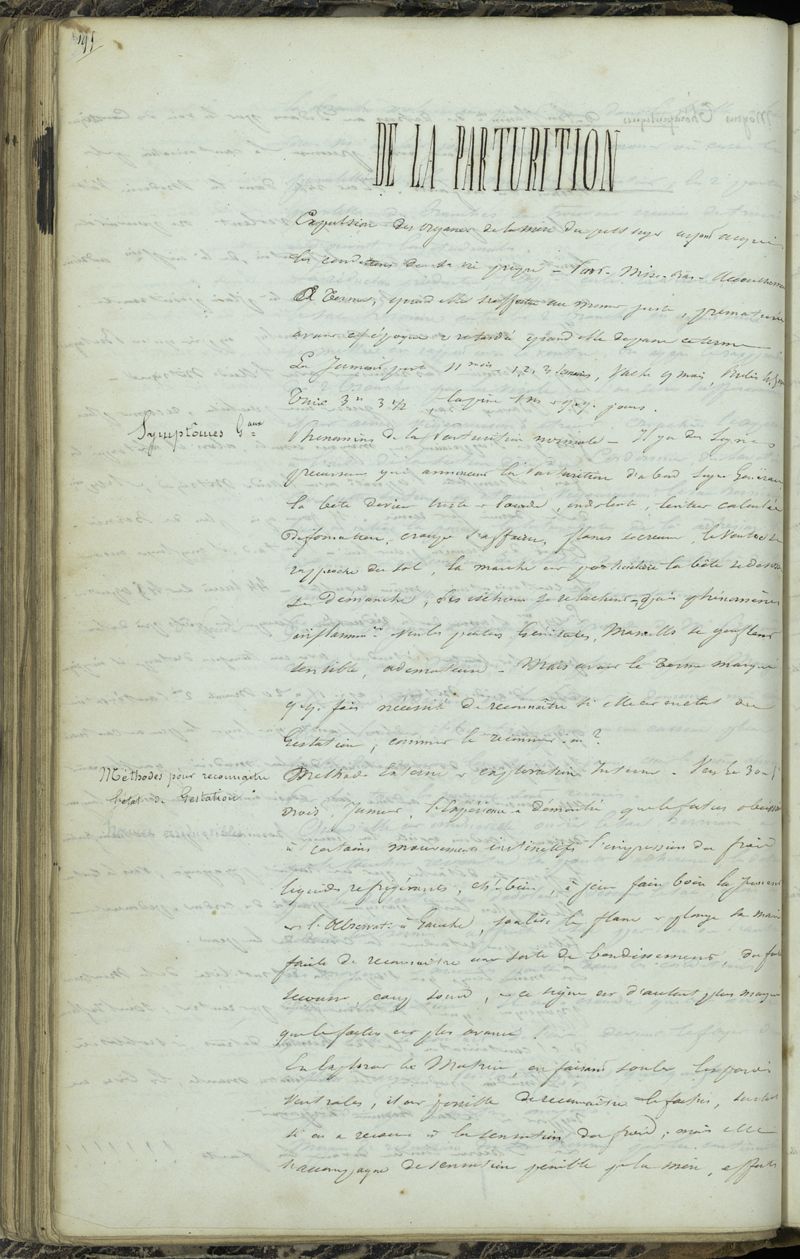 195
DE LA PARTURITION
Expulsion des organes de la mère du petit sujet ayant acquis
les conditions de sa vie propre - Part - Mise-bas - Accouchement
A Terme, quand elle s'effectue au moment juste, prématurée
avant cette époque & retardée quand elle dépasse ce terme
La Jument porte 11 mois 12, Vache 9 mois, Brebis
Truie 3 m 3 1/2, Lapine 1 m & q.q. jours.
Symptômes Gaux
Phénomènes de la Parturition normale - Il y a des Signes
précurseurs qui annoncent la Parturition d'abord Signes Généraux
la bête devient triste & lourde, indolente, lenteur calculée
Déformation, croupe s'affaisse, flancs se creusent, le Ventre se
rapproche du sol, la marche est particulière la bête se
se démanche, se relâchent - puis phénomènes
inflammres vers les parties Génitales, Mamelles se gonflent
sensible, oedémateuse - Mais avant le Terme marqué
q.q. fois nécessité de reconnaître si elle est en état de
Gestation, comment le reconnaît-on ?
Méthodes pour reconnaitre
l'état de Gestation
Méthode Externe & exploration Interne. - Vers le 3 ou
mois, Jument, l'Expérience a démontré que le foetus obéissait
à certains mouvements instinctifs l'impression du froid
liquides réfrigérants, eh bien, à jeun fait boire la Jument
& l'Observatr à Gauche, sous le flanc & plonge la main
facile de reconnaître une sorte de bondissement, du foetus
secousse, coup sourd, & ce signe est d'autant plus marqué
que le foetus est plus avancé.
En Explorant la Matrice, en faisant soulever les parois
Ventrales, il est possible de reconnaître le foetus, surtout
si on a recours à la sensation du froid, mais elle
s'accompagne de sensation pénible pr la mère, efforts